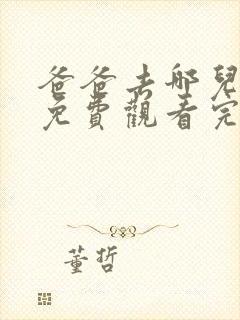 爸爸去哪兒
免費觀看完
董哲